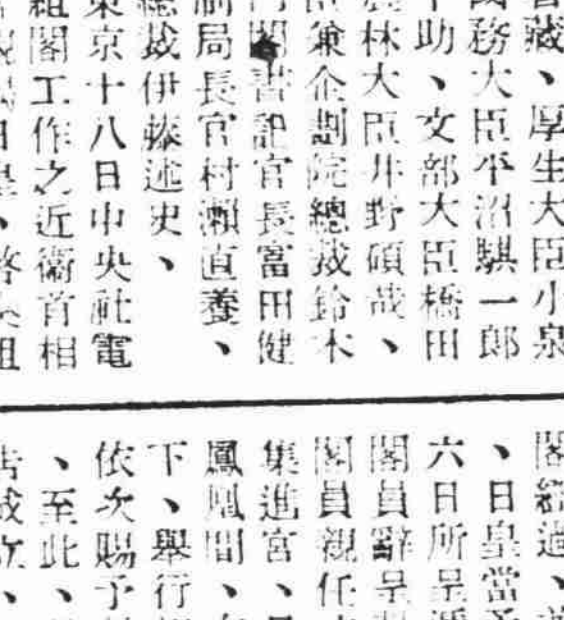 藏、厚生大臣小泉
務大臣平沼騏一郎
助、文部大臣橋田
林大臣井野碩哉、
兼企劃院總裁鈴木
閣書記官長富田健
局長官村瀨直養、
總裁伊藤述史、
東京十八日中央社電
組閣工作之近衞首相
日皇、
閣經過、
、日皇當予
六日所呈遞
閣員辭呈
閣員親任
集進宮、
鳳凰間、
下、舉行
依次賜予
、至此、